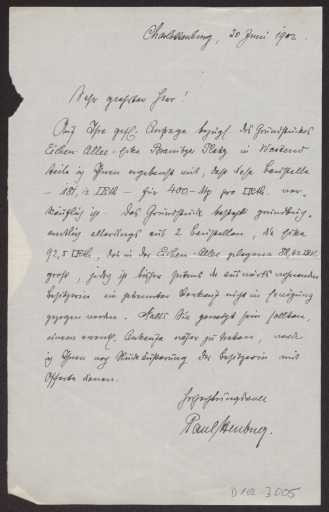 Charlottenburg, 20 Juni 1902.
Sehr geehrter Herr!
Auf Ihre gefl. Anfrage bezügl. des Grundstückes
Eichen-Allee - Ecke Branitzer Platz in Westend
teile ich Ihnen ergebenst mit, daß diese Baustelle
für 400 M pro ver-
käuflich ist. Das Grundstück besteht grundbuch-
amtlich allerdings aus 2 Baustellen, die Ecke
92,5 die in der Eichen-Allee gelegene
groß, jedoch ist bisher seitens der auswärts wohnenden
Besitzerin ein getrennter Verkauf nicht in Erwägung
gezogen worden. Falls Sie geneigt sein sollten,
einem event. Ankaufe näher zu treten, werde
ich Ihnen nach Rückäußerung der Besitzerin mit
Offerte dienen.
Hochachtungsvoll
Paul
D 102 3005